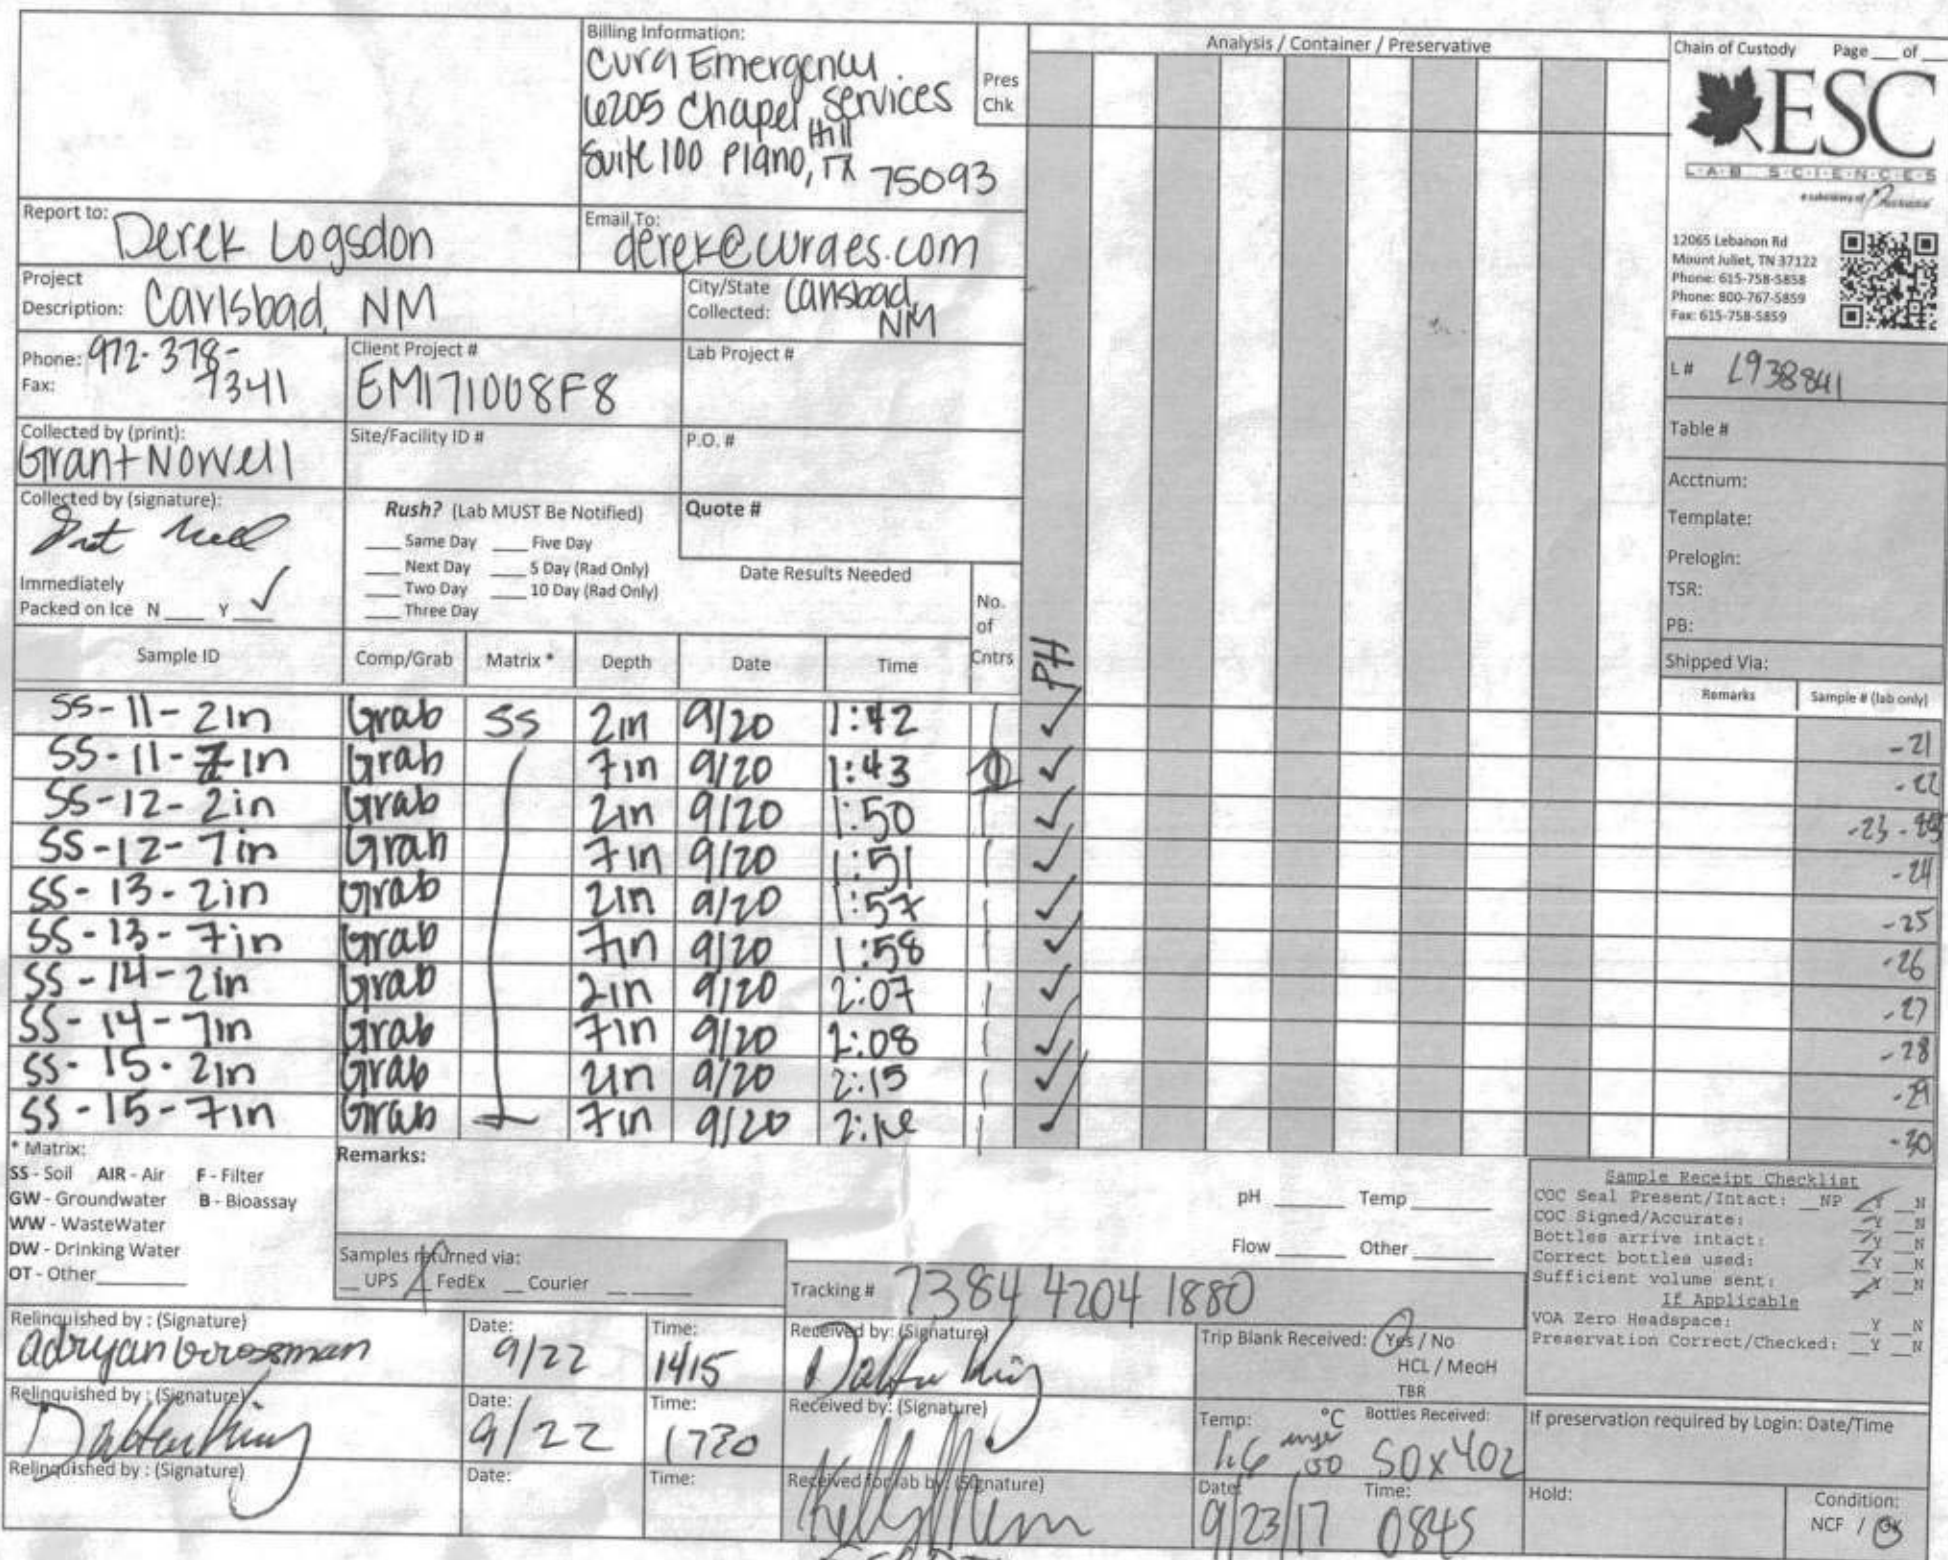 Billing Information:
Cura Emergency
Services
6205 Chapel Hill
Suite 100 Plano, TX 75093
Pres
Chk
Analysis / Container / Preservative
Chain of Custody Page ___ of ___
ESC
L·A·B S·C·I·E·N·C·E·S
a subsidiary of
12065 Lebanon Rd
Mount Juliet, TN 37122
Phone: 615-758-5858
Phone: 800-767-5859
Fax: 615-758-5859
Report to: Derek Logsdon
Email To: derek@curaes.com
Project
Description: Carlsbad, NM
City/State
Collected: Carlsbad, NM
Phone: 972-378-7341
Fax:
Client Project #
EM171008F8
Lab Project #
L# L938841
Collected by (print):
Grant Nowell
Site/Facility ID #
P.O. #
Table #
Collected by (signature):
Rush? (Lab MUST Be Notified)
___ Same Day ___ Five Day
___ Next Day ___ 5 Day (Rad Only)
___ Two Day ___ 10 Day (Rad Only)
___ Three Day
Quote #
Date Results Needed
Acctnum:
Template:
Prelogin:
TSR:
PB:
Immediately
Packed on Ice N ___ Y ✓
No.
of
Cntrs
PH
Shipped Via:
Sample ID Comp/Grab Matrix * Depth Date Time
Remarks Sample # (lab only)
SS-11-2in Grab SS 2in 9/20 1:42 1 ✓ -21
SS-11-7in Grab 7in 9/20 1:43 ✓ -22
SS-12-2in Grab 2in 9/20 1:50 1 ✓ -23
SS-12-7in Grab 7in 9/20 1:51 1 ✓ -24
SS-13-2in Grab 2in 9/20 1:57 1 ✓ -25
SS-13-7in Grab 7in 9/20 1:58 1 ✓ -26
SS-14-2in Grab 2in 9/20 2:07 1 ✓ -27
SS-14-7in Grab 7in 9/20 2:08 1 ✓ -28
SS-15-2in Grab 2in 9/20 2:15 1 ✓ -29
SS-15-7in Grab 7in 9/20 2:16 1 ✓ -30
* Matrix:
SS - Soil AIR - Air F - Filter
GW - Groundwater B - Bioassay
WW - WasteWater
DW - Drinking Water
OT - Other
Remarks:
pH ___ Temp ___
Flow ___ Other ___
Sample Receipt Checklist
COC Seal Present/Intact: __NP ✓Y __N
COC Signed/Accurate: ✓Y __N
Bottles arrive intact: ✓Y __N
Correct bottles used: ✓Y __N
Sufficient volume sent: ✓Y __N
If Applicable
VOA Zero Headspace: __Y __N
Preservation Correct/Checked: __Y __N
Samples returned via:
__ UPS __ FedEx __ Courier
Tracking # 7384 4204 1880
Relinquished by : (Signature)
Adryan Grossman
Date: 9/22
Time: 1415
Received by: (Signature)
Dalton King
Trip Blank Received: Yes / No
HCL / MeoH
TBR
Relinquished by : (Signature)
Dalton King
Date: 9/22
Time: 1730
Received by: (Signature)
Temp: °C 1.6
Bottles Received:
50x4oz
If preservation required by Login: Date/Time
Relinquished by : (Signature)
Date:
Time:
Received for lab by: (Signature)
Date: 9/23/17
Time: 0845
Hold:
Condition:
NCF / OK